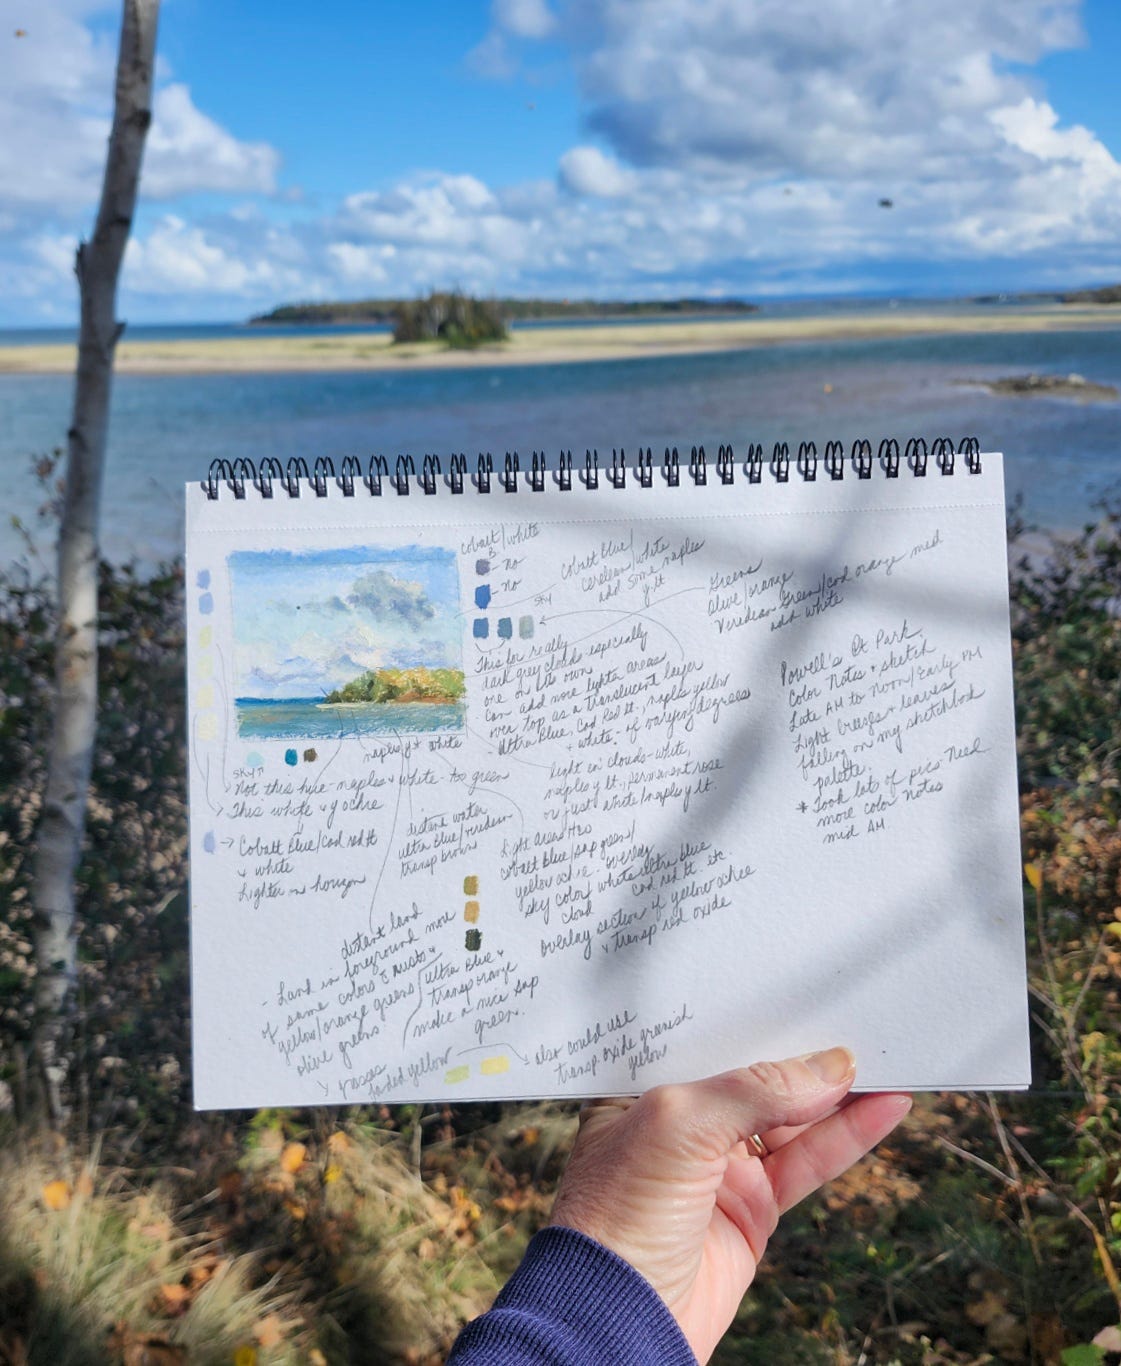 cobalt/white
B - no
- no
cobalt blue/
cerelean/white
add some naples
y lt
sky
Greens
olive/orange
Viredian Green/cad orange med
add white
This for really
dark grey clouds especially
one on its own
can add more lighter areas
over top as a translucent layer
ultra Blue, Cad Red lt, naples yellow
+ white - of varying degrees
light in clouds - white,
naples y lt, permanent rose
or just white/naples y lt.
Powell's Pt Park
Color Notes + sketch
Late AM to Noon/Early PM
Light breezes + leaves
falling on my sketchbook
palette.
* Took lots of pics - Need
more color notes
mid AM
sky ↑
naples y + white
Not this hue - naples + white - too green
This white + y ochre
→ Cobalt Blue/Cad red lt
+ white
Lighter on horizon
distant water
ultra blue/viredian
transp brown
Light areas
cobalt blue/sap green/
yellow ochre overlay
sky color/white ultra blue
cloud cad red lt. etc.
overlay section of yellow ochre
+ transp red oxide
distant land
- Land in foreground more
of same colors
yellow/orange greens/ultra Blue +
olive greens transp orange
make a nice sap
green.
grasses
faded yellow
also could use
transp oxide greenish
yellow